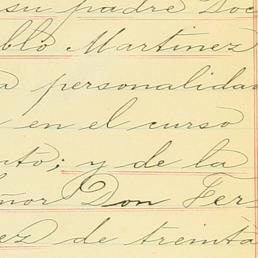 su padre Doc
blo Martinez
a personalidad
en el curso
nto; y de la
ñor Don Fer
ez de treinta